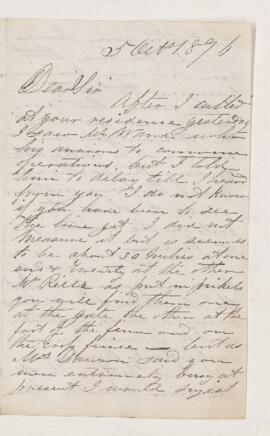 5 Oct 1876
Dear Sir
After I called
at your residence yesterday
I saw Mr
is anxious to commence
operations, but I told
him to delay till I heard
from you I do not know
if you have been to see
the line yet I did not
measure it but it seemed
to be about 30 inches at one
end & twenty at the other
Mr has put in pickets
you will find them one
at the gate the other at the
foot of the fence and on
the fence but as
Mrs said you
were extremely busy at
present I would